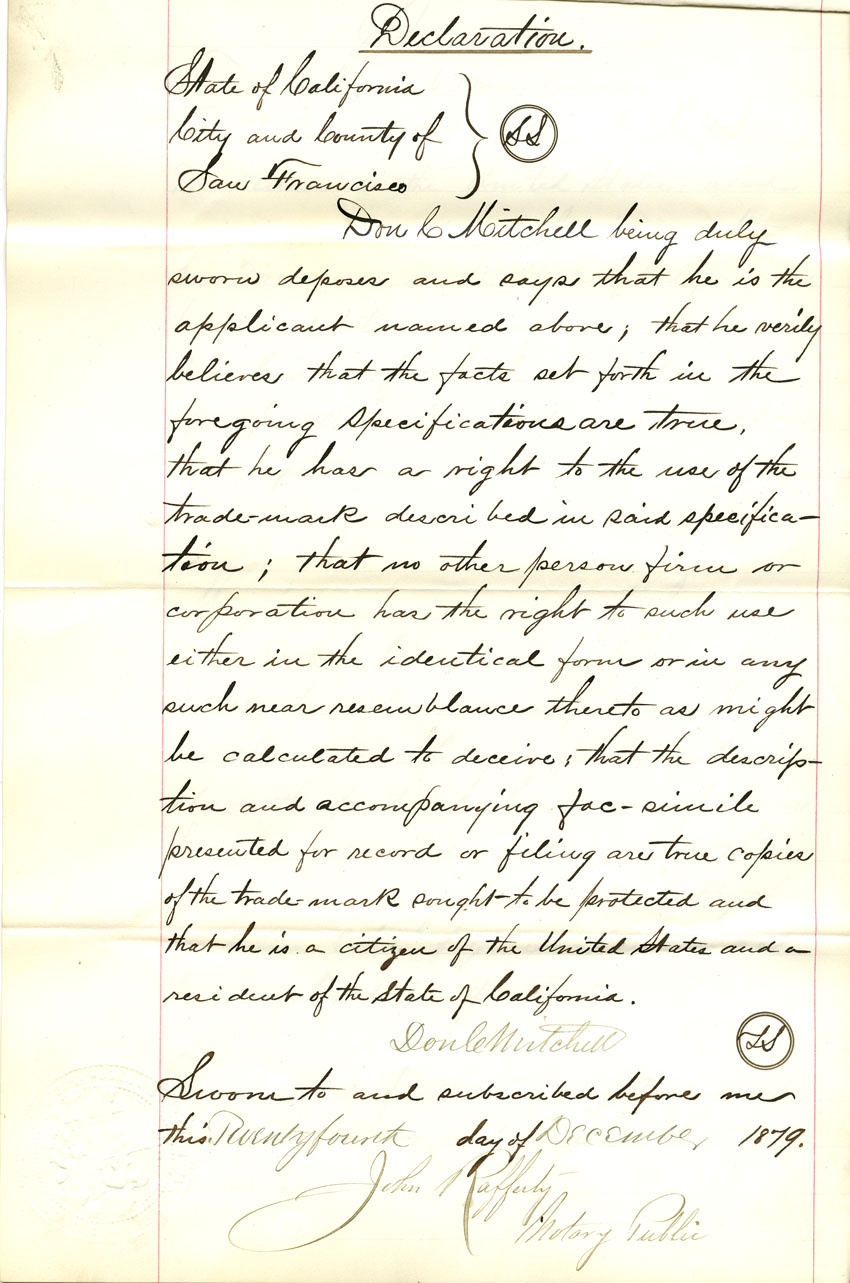 Declaration.
State of California
City and County of
San Francisco
SS
Don C Mitchell being duly
sworn deposes and says that he is the
applicant named above; that he verily
believes that the facts set forth in the
foregoing specifications are true,
that he has a right to the use of the
trade-mark described in said specifica-
tion; that no other person firm or
corporation has the right to such use
either in the identical form or in any
such near resemblance thereto as might
be calculated to deceive; that the descrip-
tion and accompanying fac-simile
presented for record or filing are true copies
of the trade-mark sought to be protected and
that he is a citizen of the United States and a
resident of the State of California.
Don C Mitchell
LS
Sworn to and subscribed before me
this Twenty fourth day of December 1879.
John Rafferty
Notary Public